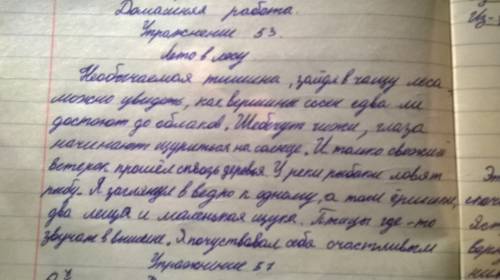 Домашняя работа.
Упражнение 53.
Лето в лесу
Необычаемая тишина, зайдя в чащу леса
можно увидеть, как вершины сосен едва ли
достают до облаков. Щебечут чижи, глаза
начинают щуриться на солнце. И только свежий
ветерок прошёл сквозь деревья. У реки рыбаки ловят
рыбу. Я заглянул в ведро к одному, а там ёршики,
два леща и маленькая щука. Птицы где-то
звучат в вышине. Я почуствовал себя счастливым
Упражнение 51
Из-
Эт